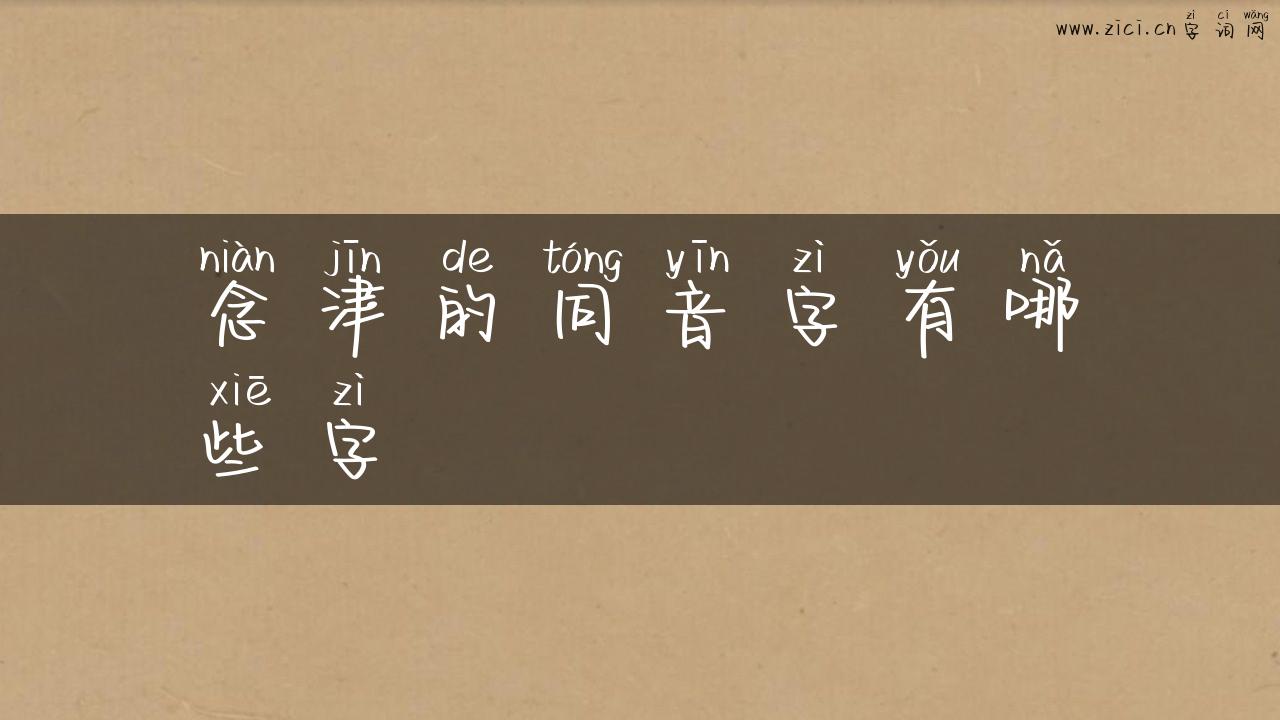 zì cí wǎng
www.zici.cn 字词网
niàn jīn de tóng yīn zì yǒu nǎ
念津的同音字有哪
xiē zì
些字